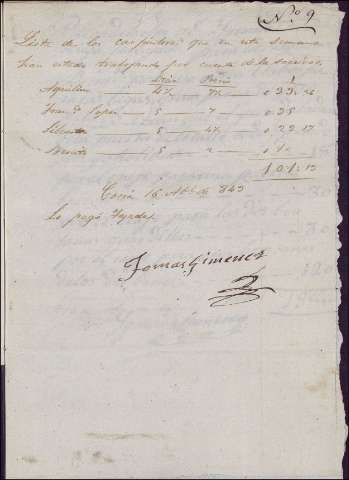 Nº 9
Lista de los carpinteros que en esta semana
han estado trabajando por cuenta de la
Dias
Aquilino 4½ 7½ 0 33:26
Franco Lopez 5 7 0 35
5 4½ 0 22:17
5 2 0 10
101:13
Coria 16 Abl de 843
Lo pagó
Tomas Gimenez